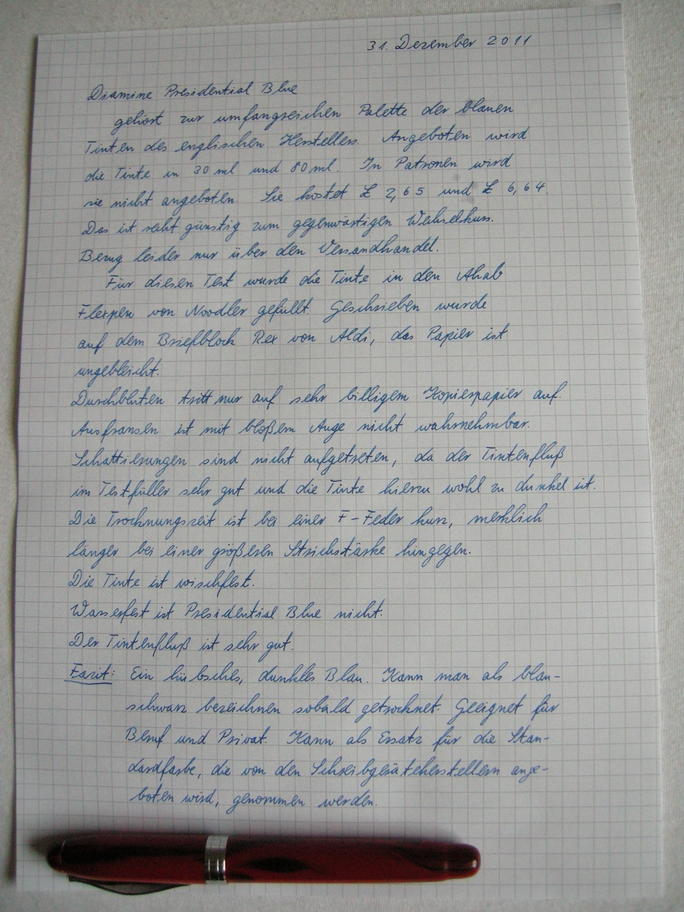 31. Dezember 2011
Diamine Presidential Blue
gehört zur umfangreichen Palette der blauen
Tinten des englischen Herstellers. Angeboten wird
die Tinte in 30 ml und 80 ml. In Patronen wird
sie nicht angeboten. Sie kostet £ 2,65 und £ 6,64.
Das ist recht günstig zum gegenwärtigen Wechselkurs.
Bezug leider nur über den Versandhandel.
Für diesen Test wurde die Tinte in den Ahab
Flexpen von Noodler gefüllt. Geschrieben wurde
auf dem Briefblock Rex von Aldi, das Papier ist
ungebleicht.
Durchbluten tritt nur auf sehr billigem Kopierpapier auf.
Ausfransen ist mit bloßem Auge nicht wahrnehmbar.
Schattierungen sind nicht aufgetreten, da der Tintenfluß
im Testfüller sehr gut und die Tinte hierzu wohl zu dunkel ist.
Die Trocknungszeit ist bei einer F-Feder kurz, merklich
länger bei einer größeren Strichstärke hingegen.
Die Tinte ist wischfest.
Wasserfest ist Presidential Blue nicht.
Der Tintenfluß ist sehr gut.
Fazit: Ein hübsches, dunkles Blau. Kann man als blau-
schwarz bezeichnen sobald getrocknet. Geeignet für
Beruf und Privat. Kann als Ersatz für die Stan-
dardfarbe, die von den Schreibgeräteherstellern ange-
boten wird, genommen werden.